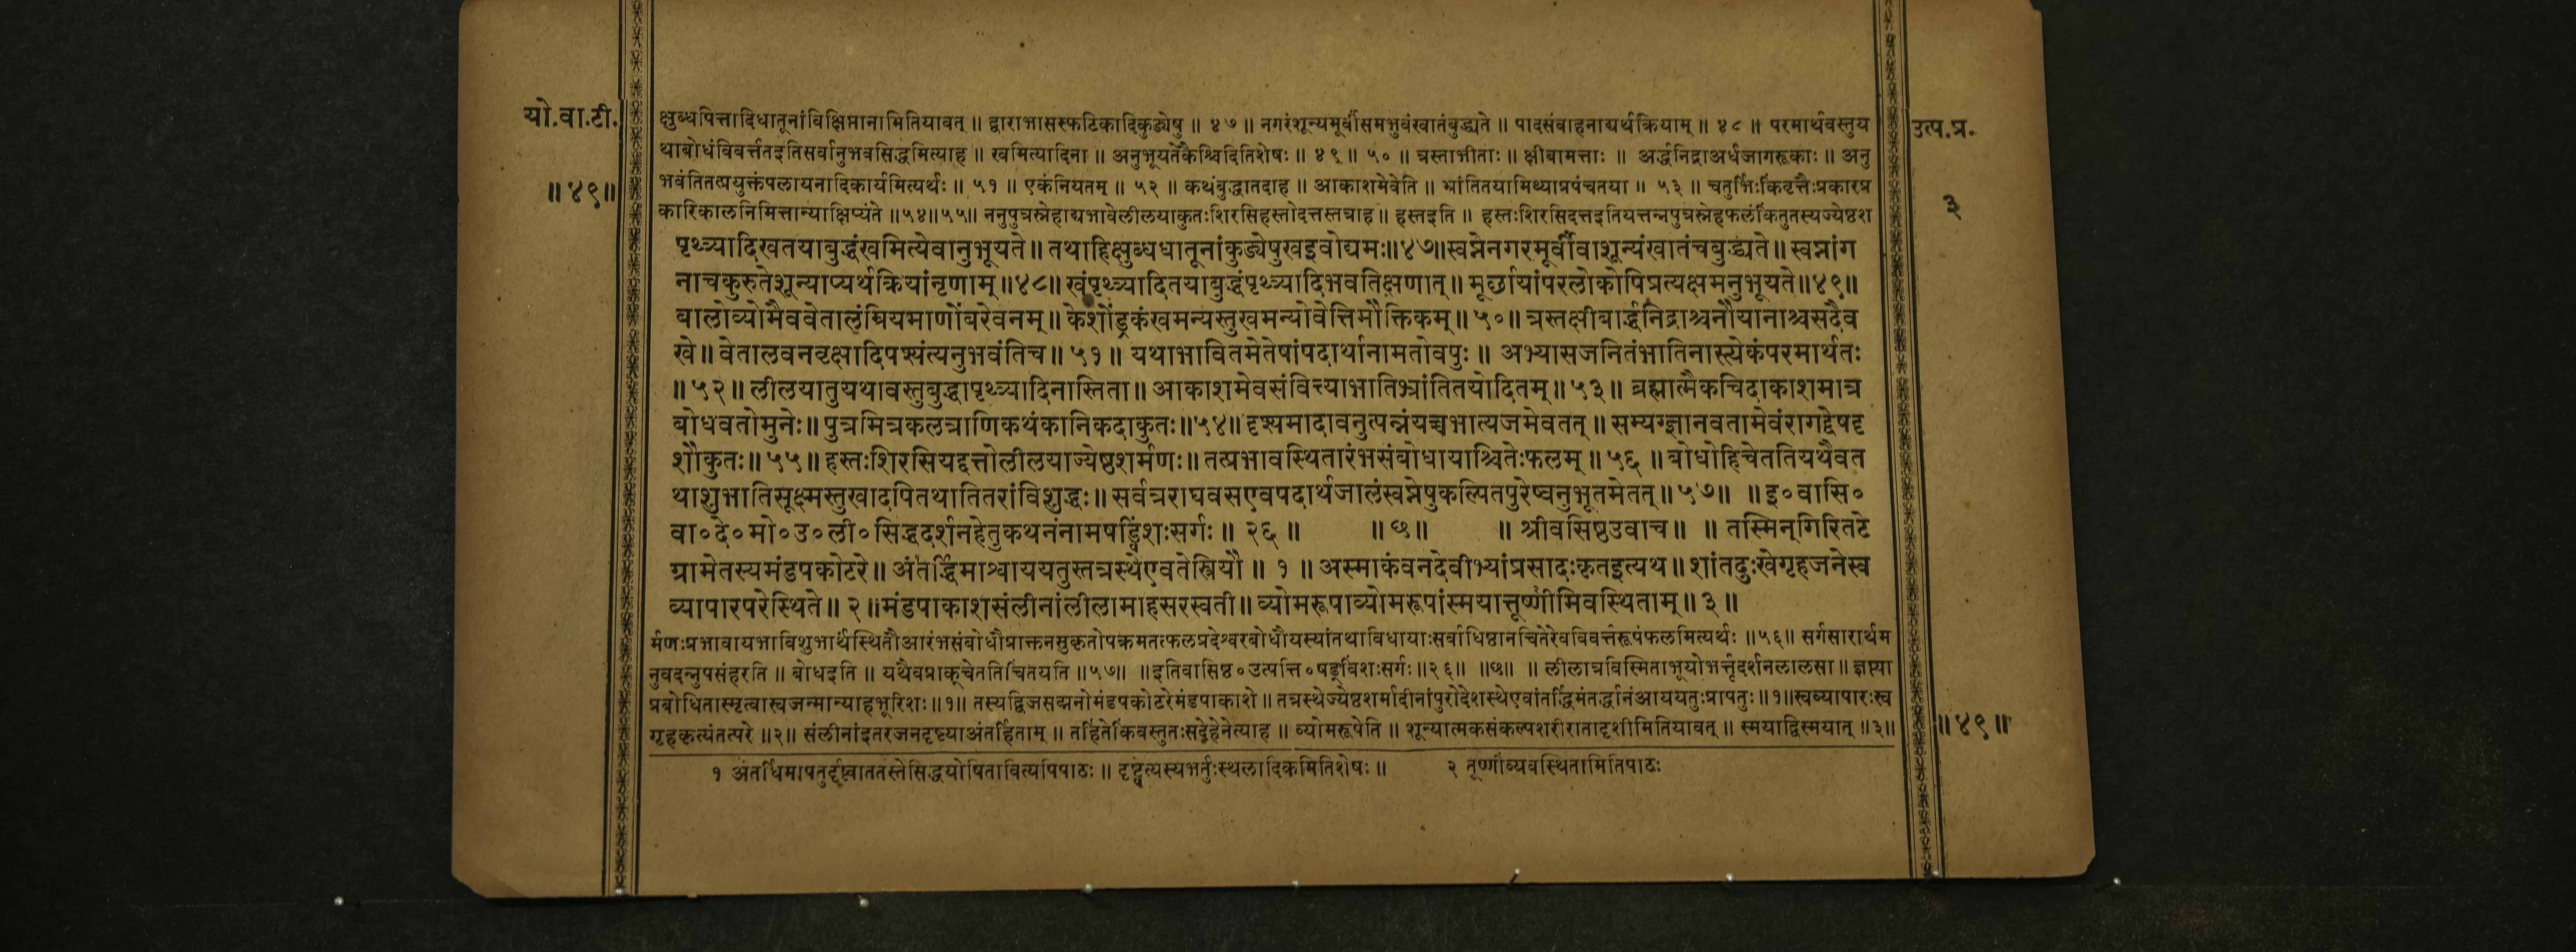 यो.वा.टी.
॥४९॥
उत्प.प्र.
३
क्षुब्धपित्तादिधातूनांविक्षिप्तानामितियावत् ॥ द्वाराभासस्फटिकादिकुड्येषु ॥ ४७ ॥ नगरंशून्यमूर्वीसमभुवंखातंबुद्ध्यते ॥ पादसंवाहनाद्यर्थक्रियाम् ॥ ४८ ॥ परमार्थवस्तुय
थाबोधंविवर्त्ततइतिसर्वानुभवसिद्धमित्याह ॥ खमित्यादिना ॥ अनुभूयतेकैश्चिदितिशेषः ॥ ४९ ॥ ५० ॥ त्रस्ताभीताः ॥ क्षीबामत्ताः ॥ अर्द्धनिद्राअर्धजागरूकाः ॥ अनु
भवंतितत्प्रयुक्तंपलायनादिकार्यमित्यर्थः ॥ ५१ ॥ एकंनियतम् ॥ ५२ ॥ कथंबुद्धातदाह ॥ आकाशमेवेति ॥ भ्रांतितयामिथ्याप्रपंचतया ॥ ५३ ॥ चतुर्भिःकिंवृत्तैःप्रकारप्र
कारिकालनिमित्तान्याक्षिप्यंते ॥५४॥५५॥ ननुपुत्रस्नेहाद्यभावेलीलयाकुतःशिरसिहस्तोदत्तस्तत्राह ॥ हस्तइति ॥ हस्तःशिरसिदत्तइतियत्तन्नपुत्रस्नेहफलंकिंतुतस्यज्येष्ठश
पृथ्व्यादिखतयाबुद्धंखमित्येवानुभूयते ॥ तथाहिक्षुब्धधातूनांकुड्येषुखइवोद्यमः॥४७॥स्वप्नेनगरमूर्वीवाशून्यंखातंचबुद्ध्यते ॥ स्वप्नांग
नाचकुरुतेशून्याप्यर्थक्रियांनृणाम् ॥४८॥ खंपृथ्व्यादितयाबुद्धंपृथ्व्यादिभवतिक्षणात् ॥ मूर्छायांपरलोकोपिप्रत्यक्षमनुभूयते॥४९॥
बालोव्योमैववेतालंम्रियमाणोंबरेवनम् ॥ केशोंड्रकंखमन्यस्तुखमन्योवेत्तिमौक्तिकम् ॥ ५० ॥ त्रस्तक्षीबार्द्धनिद्राश्चनौयानाश्चसदैव
खे ॥ वेतालवनवृक्षादिपश्यंत्यनुभवंतिच ॥ ५१ ॥ यथाभावितमेतेषांपदार्थानामतोवपुः ॥ अभ्यासजनितंभातिनास्त्येकंपरमार्थतः
॥ ५२ ॥ लीलयातुयथावस्तुबुद्धापृथ्व्यादिनास्तिता ॥ आकाशमेवसंवित्त्याभातिभ्रांतितयोदितम् ॥ ५३ ॥ ब्रह्मात्मैकचिदाकाशमात्र
बोधवतोमुनेः ॥ पुत्रमित्रकलत्राणिकथंकानिकदाकुतः ॥५४॥ दृश्यमादावनुत्पन्नंयच्चभात्यजमेवतत् ॥ सम्यग्ज्ञानवतामेवंरागद्वेषदृ
शौकुतः ॥ ५५ ॥ हस्तःशिरसियद्दत्तोलीलयाज्येष्ठशर्मणः ॥ तत्प्रभावस्थितारंभसंबोधायाश्चितेःफलम् ॥ ५६ ॥ बोधोहिचेततियथैवत
थाशुभातिसूक्ष्मस्तुखादपितथातितरांविशुद्धः ॥ सर्वत्रराघवसएवपदार्थजालंस्वप्नेषुकल्पितपुरेष्वनुभूतमेतत् ॥ ५७ ॥ ॥ इ॰वासि॰
वा॰दे॰मो॰उ॰ली॰सिद्धदर्शनहेतुकथनंनामषड्विंशःसर्गः ॥ २६ ॥ ॥ छ ॥ ॥ श्रीवसिष्ठउवाच ॥ ॥ तस्मिन्गिरितटे
ग्रामेतस्यमंडपकोटरे ॥ अंतर्द्धिमाश्वाययतुस्तत्रस्थेएवतेस्त्रियौ ॥ १ ॥ अस्माकंवनदेवीभ्यांप्रसादःकृतइत्यथ ॥ शांतदुःखेगृहजनेस्व
व्यापारपरेस्थिते ॥ २॥ मंडपाकाशसंलीनांलीलामाहसरस्वती ॥ व्योमरूपाव्योमरूपांस्मयात्तूष्णींमिवस्थिताम् ॥ ३ ॥
र्मणःप्रभावायभाविशुभार्थंस्थितौआरंभसंबोधौप्राक्तनसुकृतोपक्रमतत्फलप्रदेश्वरबोधौयस्यांतथाविधायाःसर्वाधिष्ठानचितेरेवविवर्त्तरूपंफलमित्यर्थः ॥५६॥ सर्गसारार्थम
नुवदन्नुपसंहरति ॥ बोधइति ॥ यथैवप्राक्चेततिचिंतयति ॥५७॥ ॥इतिवासिष्ठ॰उत्पत्ति॰षड्विंशःसर्गः॥२६॥ ॥छ॥ ॥ लीलात्रविस्मिताभूयोभर्तृदर्शनलालसा ॥ ज्ञप्त्या
प्रबोधितास्मृत्वास्वजन्मान्याहभूरिशः ॥१॥ तस्यद्विजसद्मनोमंडपकोटरेमंडपाकाशे ॥ तत्रस्थेज्येष्ठशर्मादीनांपुरोदेशस्थेएवांतर्द्धिमंतर्द्धानंआययतुःप्रापतुः ॥१॥स्वव्यापारःस्व
गृहकृत्यंतत्परे ॥२॥ संलीनांइतरजनदृष्ट्याअंतर्हिताम् ॥ तर्हितेकिंवस्तुतःसद्देहेनेत्याह ॥ व्योमरूपेति ॥ शून्यात्मकसंकल्पशरीरातादृशीमितियावत् ॥ स्मयाद्विस्मयात् ॥३॥
॥४९॥
१ अंतर्धिमापतुर्दृष्ट्वाततस्तेसिद्धयोषितावित्यपिपाठः ॥ दृष्ट्वेत्यस्यभर्तुःस्थलादिकमितिशेषः ॥ २ तूष्णींव्यवस्थितामितिपाठः